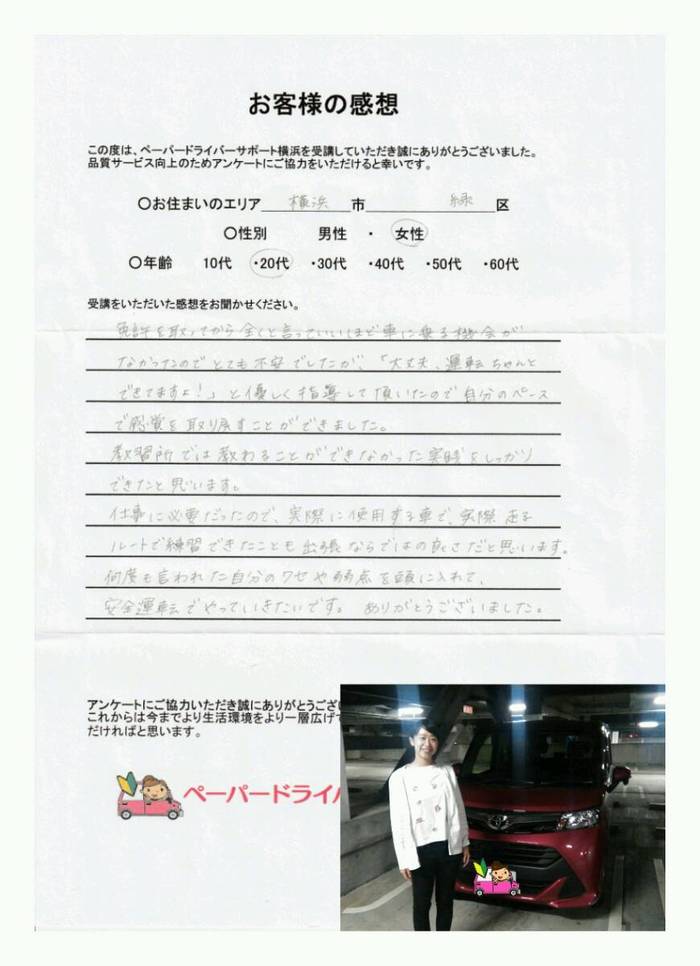 お客様の感想
この度は、ペーパードライバーサポート横浜を受講していただき誠にありがとうございました。
品質サービス向上のためアンケートにご協力をいただけると幸いです。
〇お住まいのエリア 横浜 市 緑 区
〇性別 男性 ・ 女性
〇年齢 10代 ・20代 ・30代 ・40代 ・50代 ・60代
受講をいただいた感想をお聞かせください。
免許を取ってから全くと言っていいほど車に乗る機会が
なかったのでとても不安でしたが、「大丈夫、運転ちゃんと
できてますよ!」と優しく指導して頂いたので自分のペース
で感覚を取り戻すことができました。
教習所では教わることができなかった実践をしっかり
できたと思います。
仕事に必要だったので、実際に使用する車で、実際走る
ルートで練習できたことも出張ならではの良さだと思います。
何度も言われた自分のクセや弱点を頭に入れて、
安全運転でやっていきたいです。 ありがとうございました。
アンケートにご協力いただき誠にありがとうござい
これからは今までより生活環境をより一層広げて
だければと思います。
ペーパードライバ